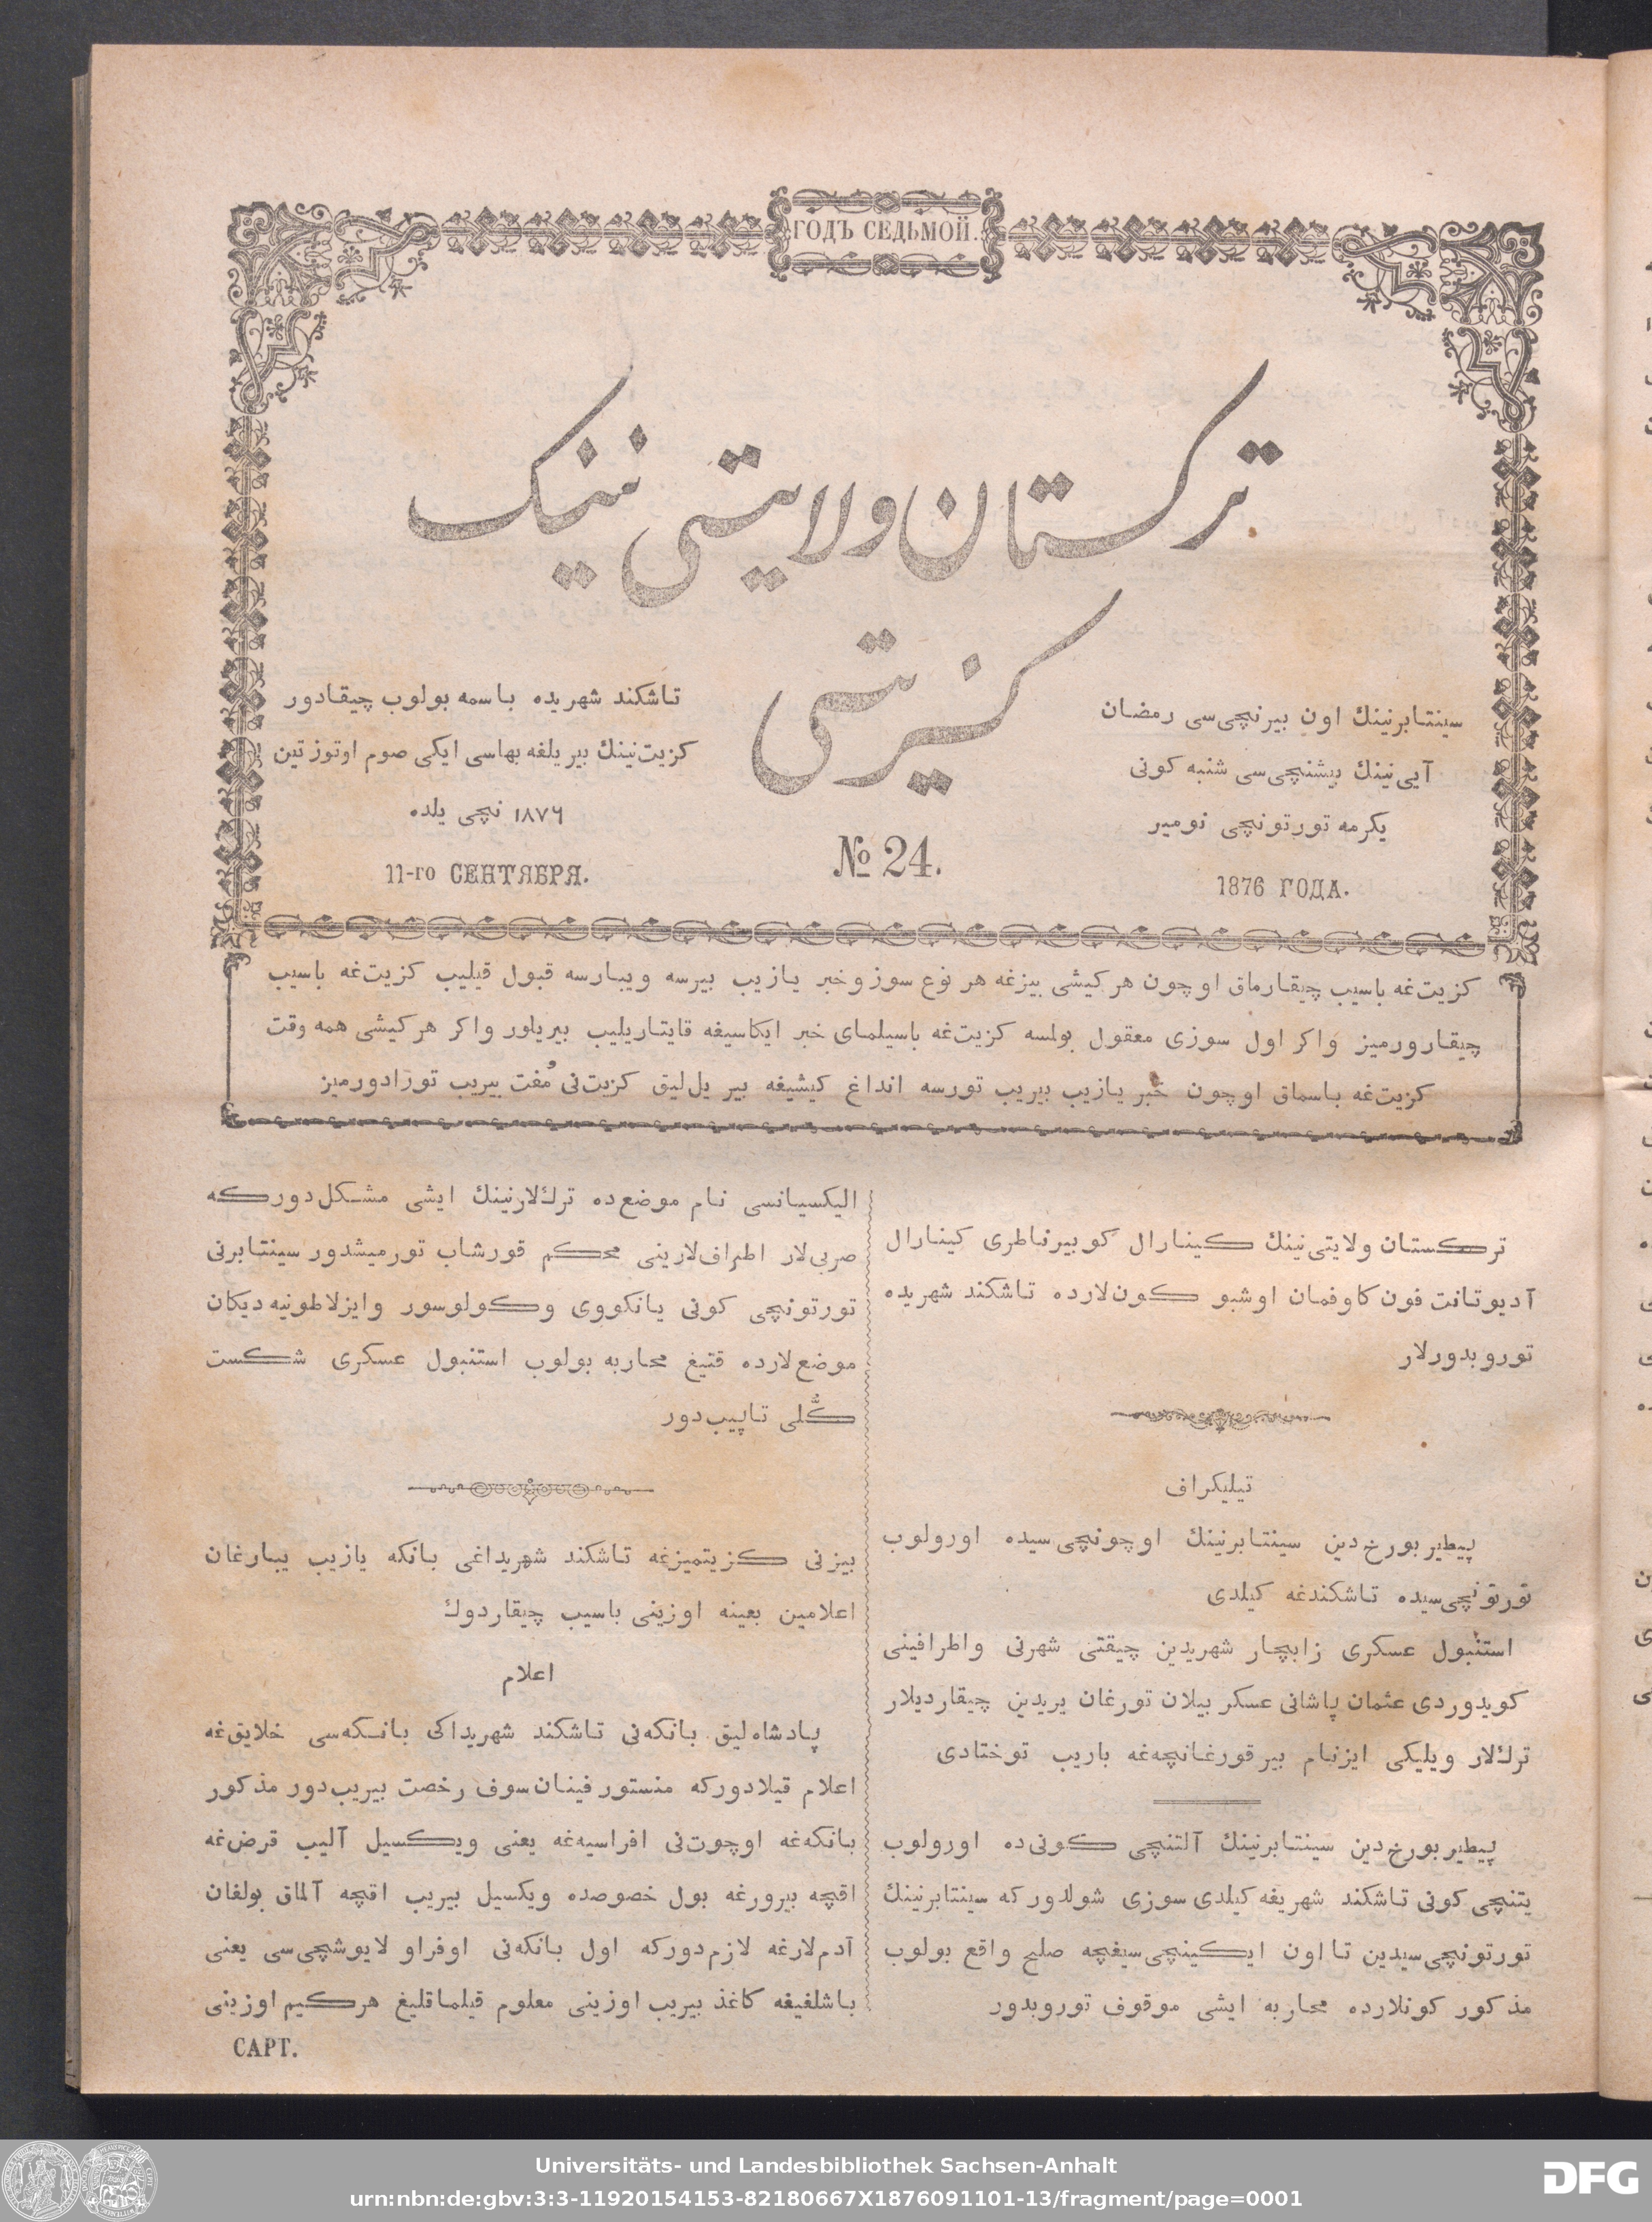 ГОДЪ СЕДЬМОЙ.
ترکستان ولایتی نینک
کزیتی
سینتابرنینك اون بیرنچی‌سی رمضان
آیی‌نینك بیشنچی‌سی شنبه کونی
یکرمه تورتونچی نومیر
1876 ГОДА.
№ 24.
تاشکند شهریده باسمه بولوب چیقادور
کزیت‌نینك بیر یلغه بهاسی ایکی صوم اوتوز تین
۱۸۷۶ نچی یلده
11-го СЕНТЯБРЯ.
کزیت‌غه باسیب چیقارماق اوچون هر کیشی بیزغه هر نوع سوز و خبر یازیب بیرسه ویبارسه قبول قیلیب کزیت‌غه باسیب
چیقارورمیز واکر اول سوزی معقول بولمسه کزیت‌غه باسیلمای خبر ایکاسیغه قایتاریلیب بیریلور واکر هر کیشی همه وقت
کزیت‌غه باسماق اوچون خبر یازیب بیریب تورسه انداغ کیشیغه بیر یل‌لیق کزیت‌نی مُفت بیریب تورادورمیز
ترکستان ولایتی‌نینك کینارال کوبیرناطری کینارال
آدیوتانت فون کاوفمان اوشبو کون‌لارده تاشکند شهریده
توروبدورلار
تیلیکراف
پیطیربورخ‌دین سینتابرنینك اوچونچی‌سیده اورولوب
تورتونچی‌سیده تاشکندغه کیلدی
استنبول عسکری زایچار شهریدین چیقتی شهرنی واطرافینی
کویدوردی عثمان پاشانی عسکر بیلان تورغان یریدین چیقاردیلار
ترك‌لار ویلیکی ایزنام بیر قورغانچه‌غه باریب توختادی
پیطیربورخ‌دین سینتابرنینك آلتنچی کونی‌ده اورولوب
یتنچی کونی تاشکند شهریغه کیلدی سوزی شولدورکه سینتابرنینك
تورتونچی‌سیدین تا اون ایکینچی‌سیغچه صلح واقع بولوب
مذکور کونلارده محاربه ایشی موقوف توروبدور
الیکسیانسی نام موضع‌ده ترك‌لارنینك ایشی مشکل‌دورکه
صربی‌لار اطراف‌لارینی محکم قورشاب تورمیشدور سینتابرنی
تورتونچی کونی یانکووی وکولوسور وایزلاطونیه دیکان
موضع‌لارده قتیغ محاربه بولوب استنبول عسکری شکست
کُلّی تاپیب‌دور
بیزنی کزیتمیزغه تاشکند شهریداغی بانکه یازیب یبارغان
اعلامین بعینه اوزینی باسیب چیقاردوك
اعلام
پادشاه‌لیق بانکه‌نی تاشکند شهریداکی بانکه‌سی خلایق‌غه
اعلام قیلادورکه منستور فینان‌سوف رخصت بیریب‌دور مذکور
بانکه‌غه اوچوت‌نی افراسیه‌غه یعنی ویکسیل آلیب قرض‌غه
اقچه بیرورغه بول خصوصده ویکسیل بیریب اقچه آلماق بولغان
آدم‌لارغه لازم‌دورکه اول بانکه‌نی اوفراو لایوشچی‌سی یعنی
باشلغیغه کاغذ بیریب اوزینی معلوم قیلماقلیغ هرکیم اوزینی
САРТ.
Universitäts- und Landesbibliothek Sachsen-Anhalt
urn:nbn:de:gbv:3:3-11920154153-82180667X1876091101-13/fragment/page=0001
DFG